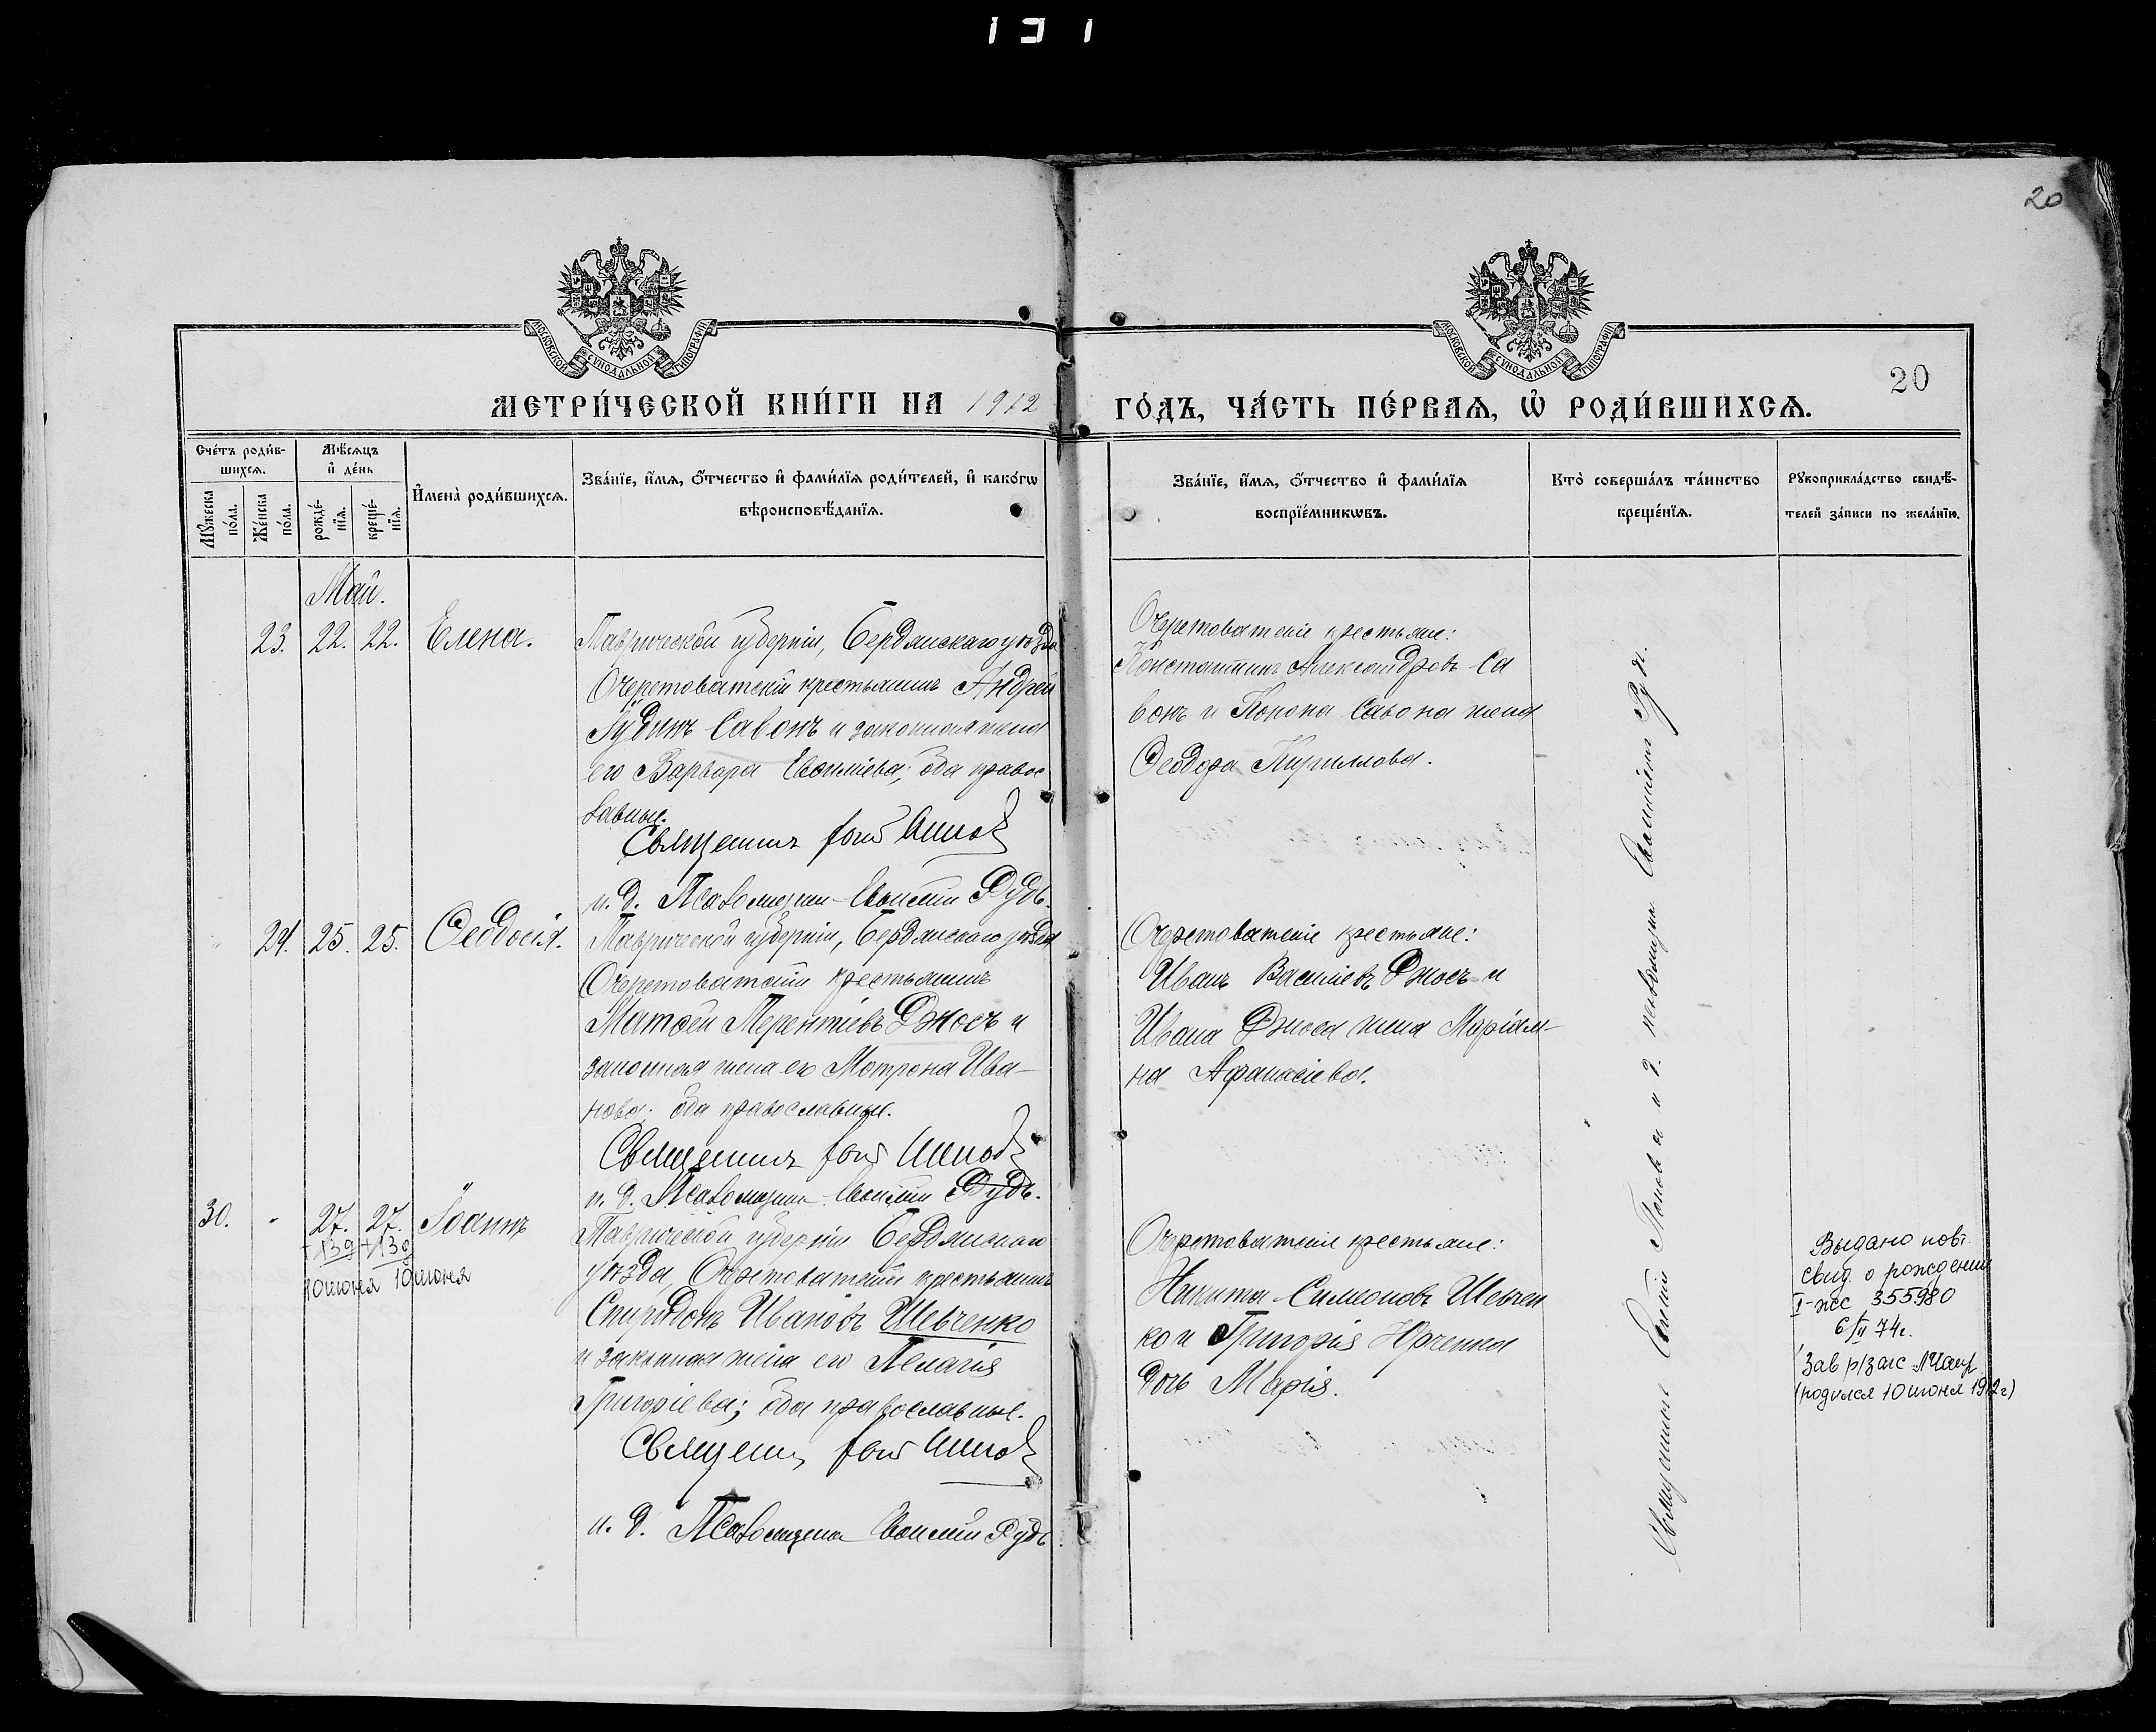 131
20
МОСКОВСКОЙ СѴНОДАЛЬНОЙ ТИПОГРАФІИ
МОСКОВСКОЙ СѴНОДАЛЬНОЙ ТИПОГРАФІИ
20
МЕТРИ́ЧЕСКОЙ КНИ́ГИ НА 1912 ГО́ДЪ, ЧА́СТЬ ПЕ́РВАЯ, Ѡ РОДИ́ВШИХСЯ.
Сче́тъ роди́в-
шихся.
Мѣ́сяцъ
и де́нь
Мꙋжеска по́ла.
Же́нска по́ла.
рожде́-нїя.
креще́-нїя.
И҆мена̀ роди́вшихся.
Зва́нїе, и҆́мя, ѻ҆́тчество и҆ фами́лїя роди́телей, и҆ како́гѡ
вѣроисповѣ́данїя.
Зва́нїе, и҆́мя, ѻ҆́тчество и҆ фами́лїя
воспрїе́мникѡвъ.
Кто̀ соверша́лъ та́инство
креще́нїя.
Рꙋкоприкла́дство свидѣ́-
телей за́писи по жела́нїю.
Май.
23. 22. 22. Елена.
Таврической губерніи, Бердянскаго уѣзда
Очеретоватскій крестьянинъ Андрей
Іудинъ Савонъ и законная жена
его Варвара Евѳиміева; оба правос
лавные.
Священникъ
и. д. Псаломщика Евѳимій Рудь.
Очеретоватскіе крестьяне:
Константинъ Александровъ Са
вонъ и Конона Савона жена
Ѳеодора Кириллова.
24. 25. 25. Ѳеодосія.
Таврической губерніи, Бердянскаго уѣзда
Очеретоватскій крестьянинъ
Матѳей Терентіевъ Джосъ и
законная жена его Мотрона Ива-
нова; оба православные.
Священникъ
и. д. Псаломщика Евѳимій Рудь.
Очеретоватскіе крестьяне:
Иванъ Василіевъ Джосъ и
Ивана Джоса жена Маріам-
на Афанасіева.
30. - 27. 27. Іоаннъ
+13д +13д
10 июня 10 июня
Таврической губерніи Бердянскаго
уѣзда, Очеретоватскій крестьянинъ
Спиридонъ Ивановъ Шевченко
и законная жена его Пелагія
Григоріева; оба православные.
Священникъ
и. д. Псаломщика Евѳимій Рудь
Очеретоватскіе крестьяне:
Никита Симеоновъ Шевчен
ко и Григорія Юрченка
дочь Марія.
Священникъ Попов и и. д. псаломщика Евѳимій Рудь.
Выдано повт.
свид. о рождении
I-жс 355980
6/II 74г.
Зав р/загс
(родился 10 июня 1912г)